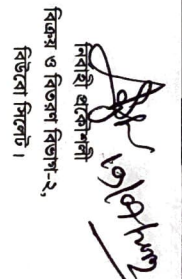 নির্বাহী প্রকৌশলী
বিক্রয় ও বিতরণ বিভাগ-২,
বিউবো সিলেট।